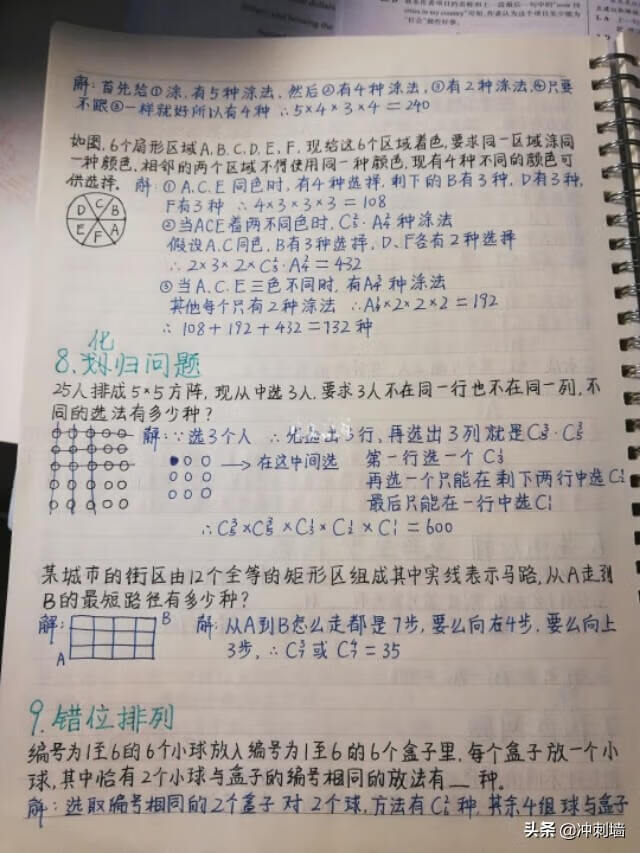 解:首先给①涂,有5种涂法,然后②有4种涂法,③有2种涂法,④只要
不跟③一样就好所以有4种 ∴5×4×3×4=240
如图,6个扇形区域A,B,C,D,E,F,现给这6个区域着色,要求同一区域涂同
一种颜色,相邻的两个区域不得使用同一种颜色,现有4种不同的颜色可
供选择. 解:①A,C,E同色时,有4种选择,剩下的B有3种,D有3种,
F有3种 ∴4×3×3×3=108
D C B
E F A
②当ACE着两不同色时,C₃²·A₄²种涂法
假设A,C同色,B有3种选择,D、F各有2种选择
∴2×3×2×C₃²·A₄²=432
③当A,C,E三色不同时,有A₄³种涂法
其他每个只有2种涂法 ∴A₄³×2×2×2=192
∴108+192+432=732种
化
8.划归问题
25人排成5×5方阵,现从中选3人,要求3人不在同一行也不在同一列,不
同的选法有多少种?
解:∵选3个人 ∴先选出3行,再选出3列就是C₅³·C₅³
→在这中间选 第一行选一个C₃¹
再选一个只能在剩下两行中选C₂¹
最后只能在一行中选C₁¹
∴C₅³×C₅³×C₃¹×C₂¹×C₁¹=600
某城市的街区由12个全等的矩形区组成其中实线表示马路,从A走到
B的最短路径有多少种?
解: B
A
解:从A到B怎么走都是7步,要么向右4步,要么向上
3步,∴C₇³或C₇⁴=35
9.错位排列
编号为1至6的6个小球放入编号为1至6的6个盒子里,每个盒子放一个小
球,其中恰有2个小球与盒子的编号相同的放法有__种。
解:选取编号相同的2个盒子对2个球,方法有C₆²种,其余4组球与盒子
头条@冲刺墙